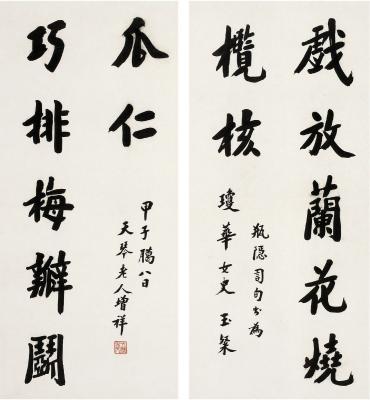 戲放蘭花燒
欖核
瓶隱司句書為
瓊華女史玉粲
巧排梅瓣鬭
瓜仁
甲子臘八日
天琴老人增祥